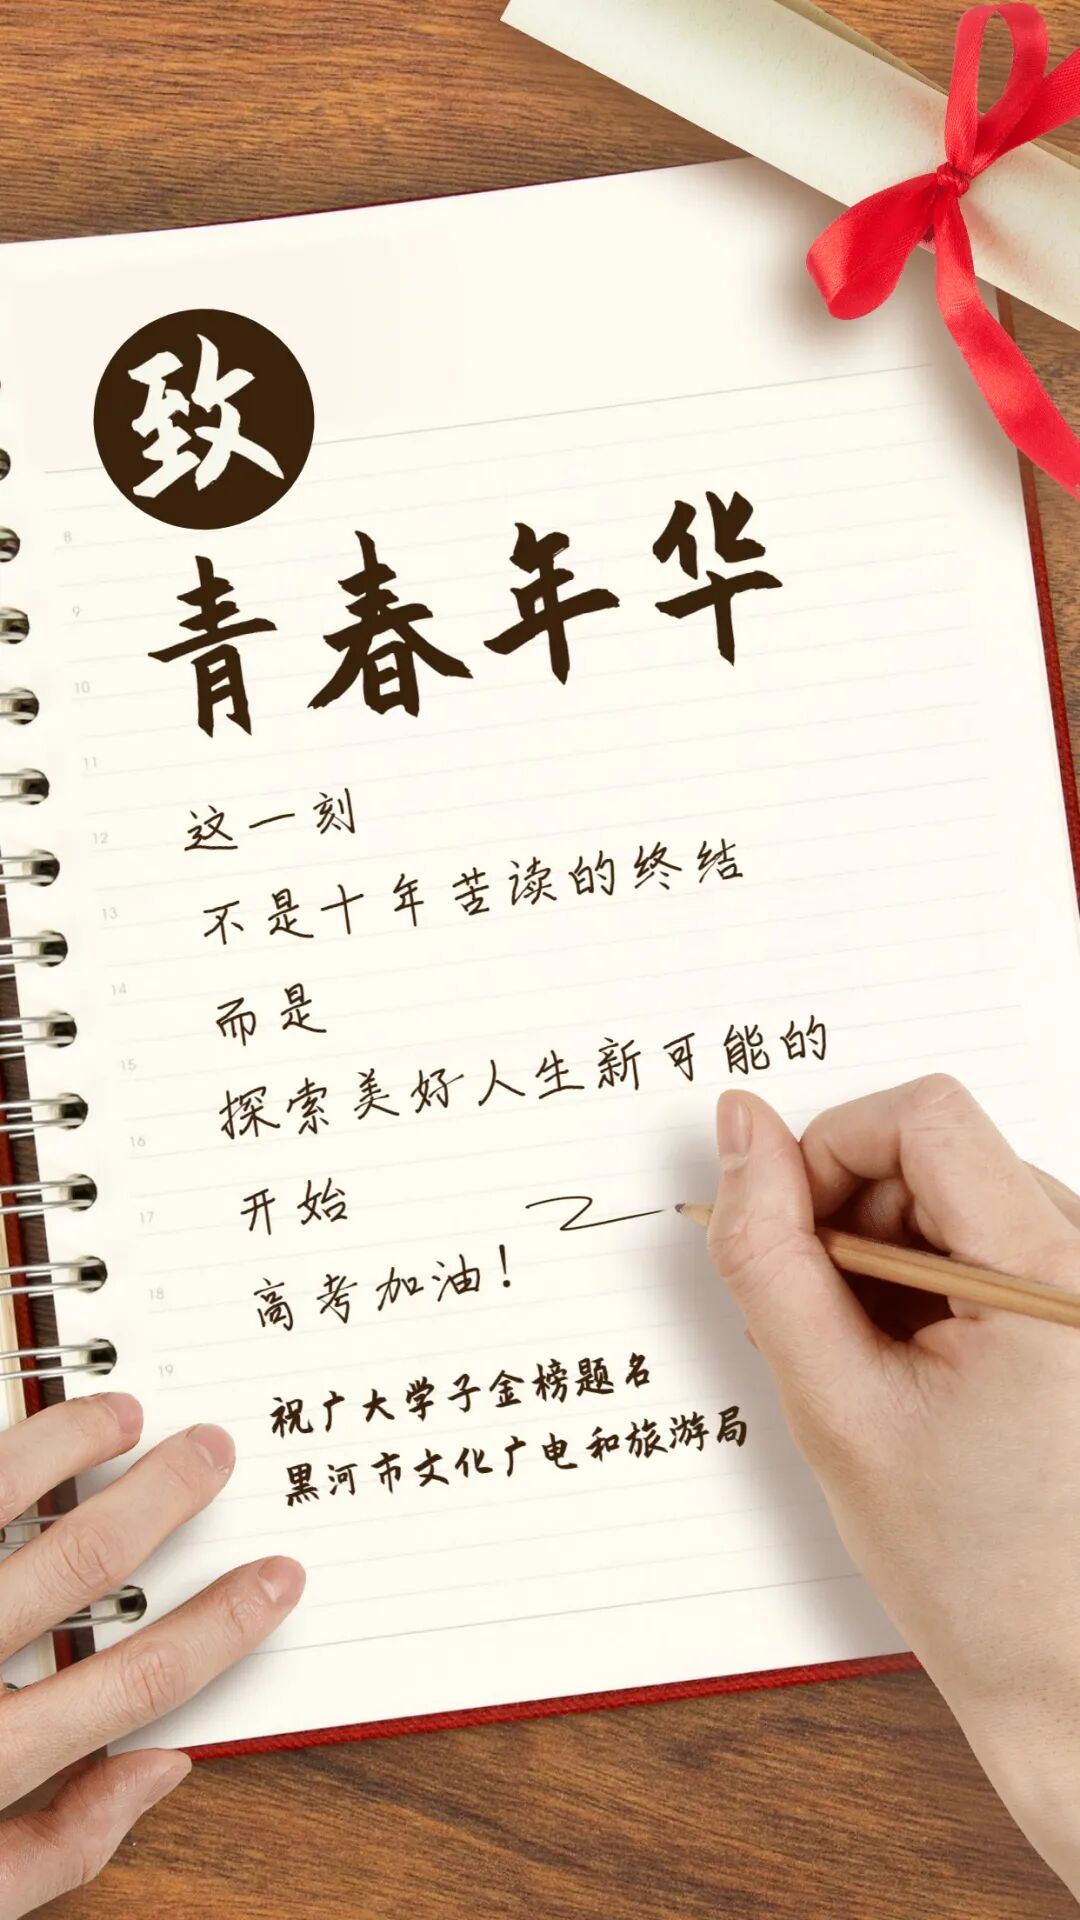 致
青春年华
8
9
10
11
这一刻
12
不是十年苦读的终结
13
14
而是
15
探索美好人生新可能的
16
开始
17
高考加油！
18
19
祝广大学子金榜题名
黑河市文化广电和旅游局